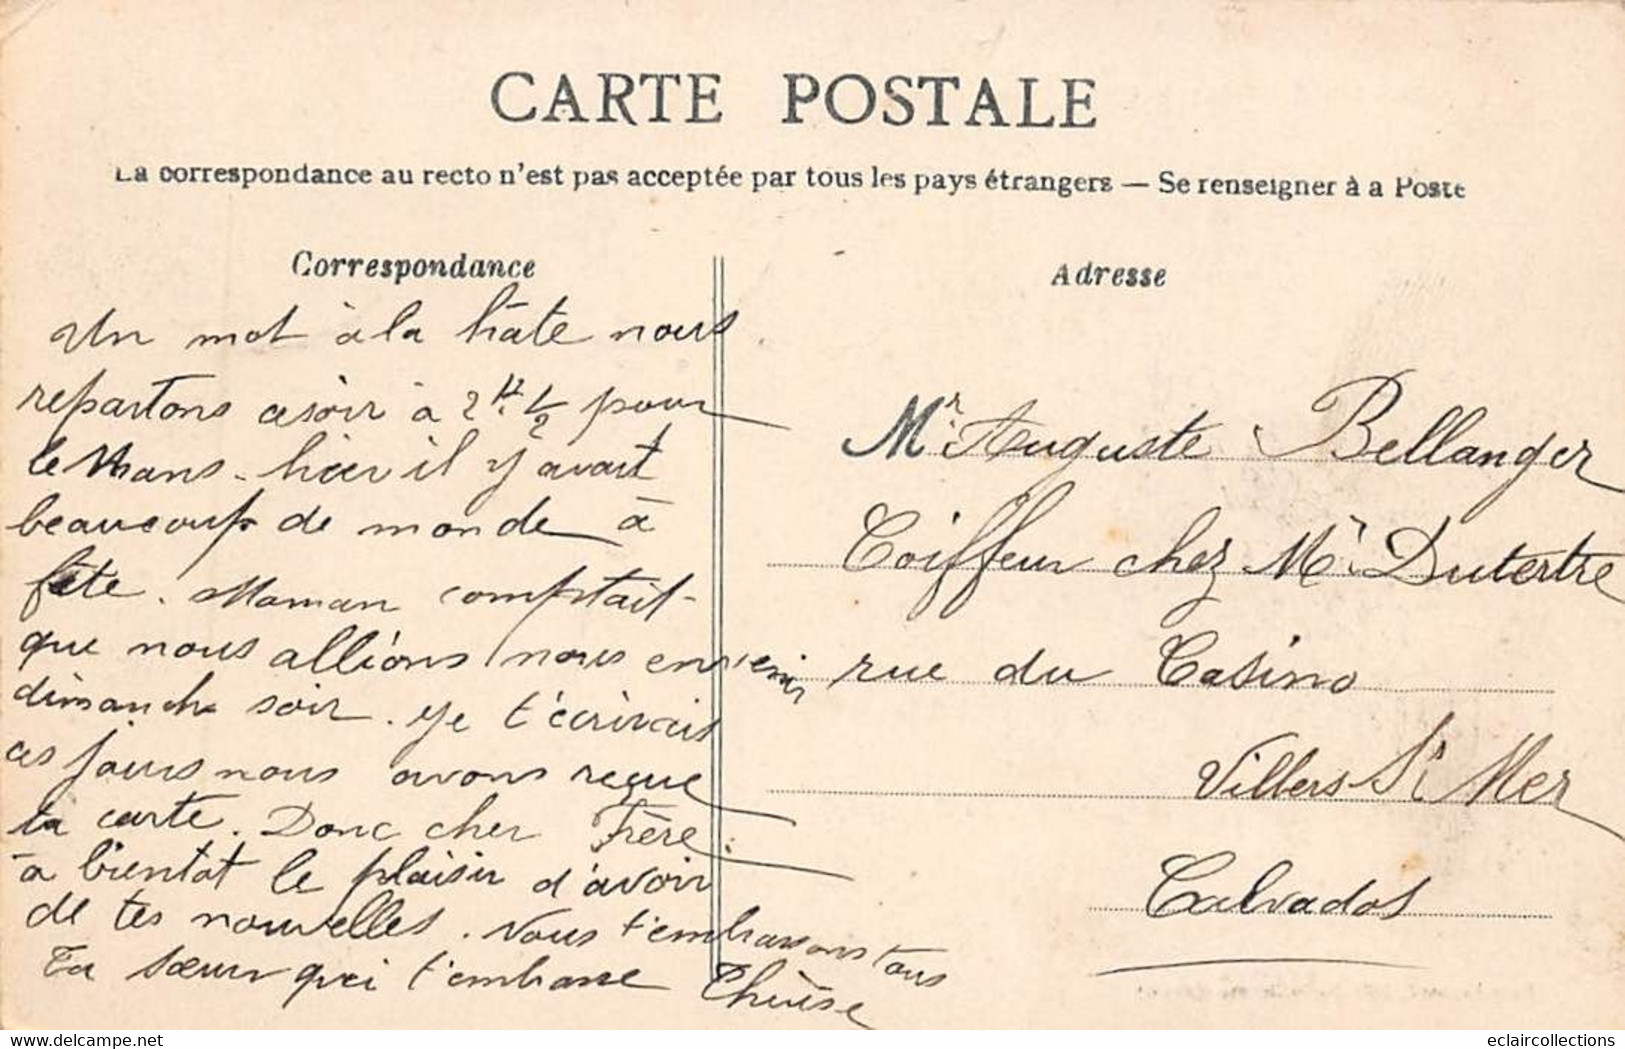 CARTE POSTALE
La correspondance au recto n'est pas acceptée par tous les pays étrangers — Se renseigner à a Poste
Correspondance
Un mot à la hâte nous
repartons cesoir à 2 H. 1/2 pour
le Mans - hier il y avait
beaucoup de monde à
fête. Maman comptait
que nous allions nous en venir
dimanche soir. Je t'écrivais
ces jours nous avons reçue
ta carte. Donc cher Frère
à bientot le plaisir d'avoir
de tes nouvelles. Nous t'embrassons tous
Ta sœur qui t'embrasse
Adresse
Mr Auguste Bellanger
Coiffeur chez Mr Dutertre
rue du Casino
Villers St Mer
Calvados
www.delcampe.net
eclaircollections